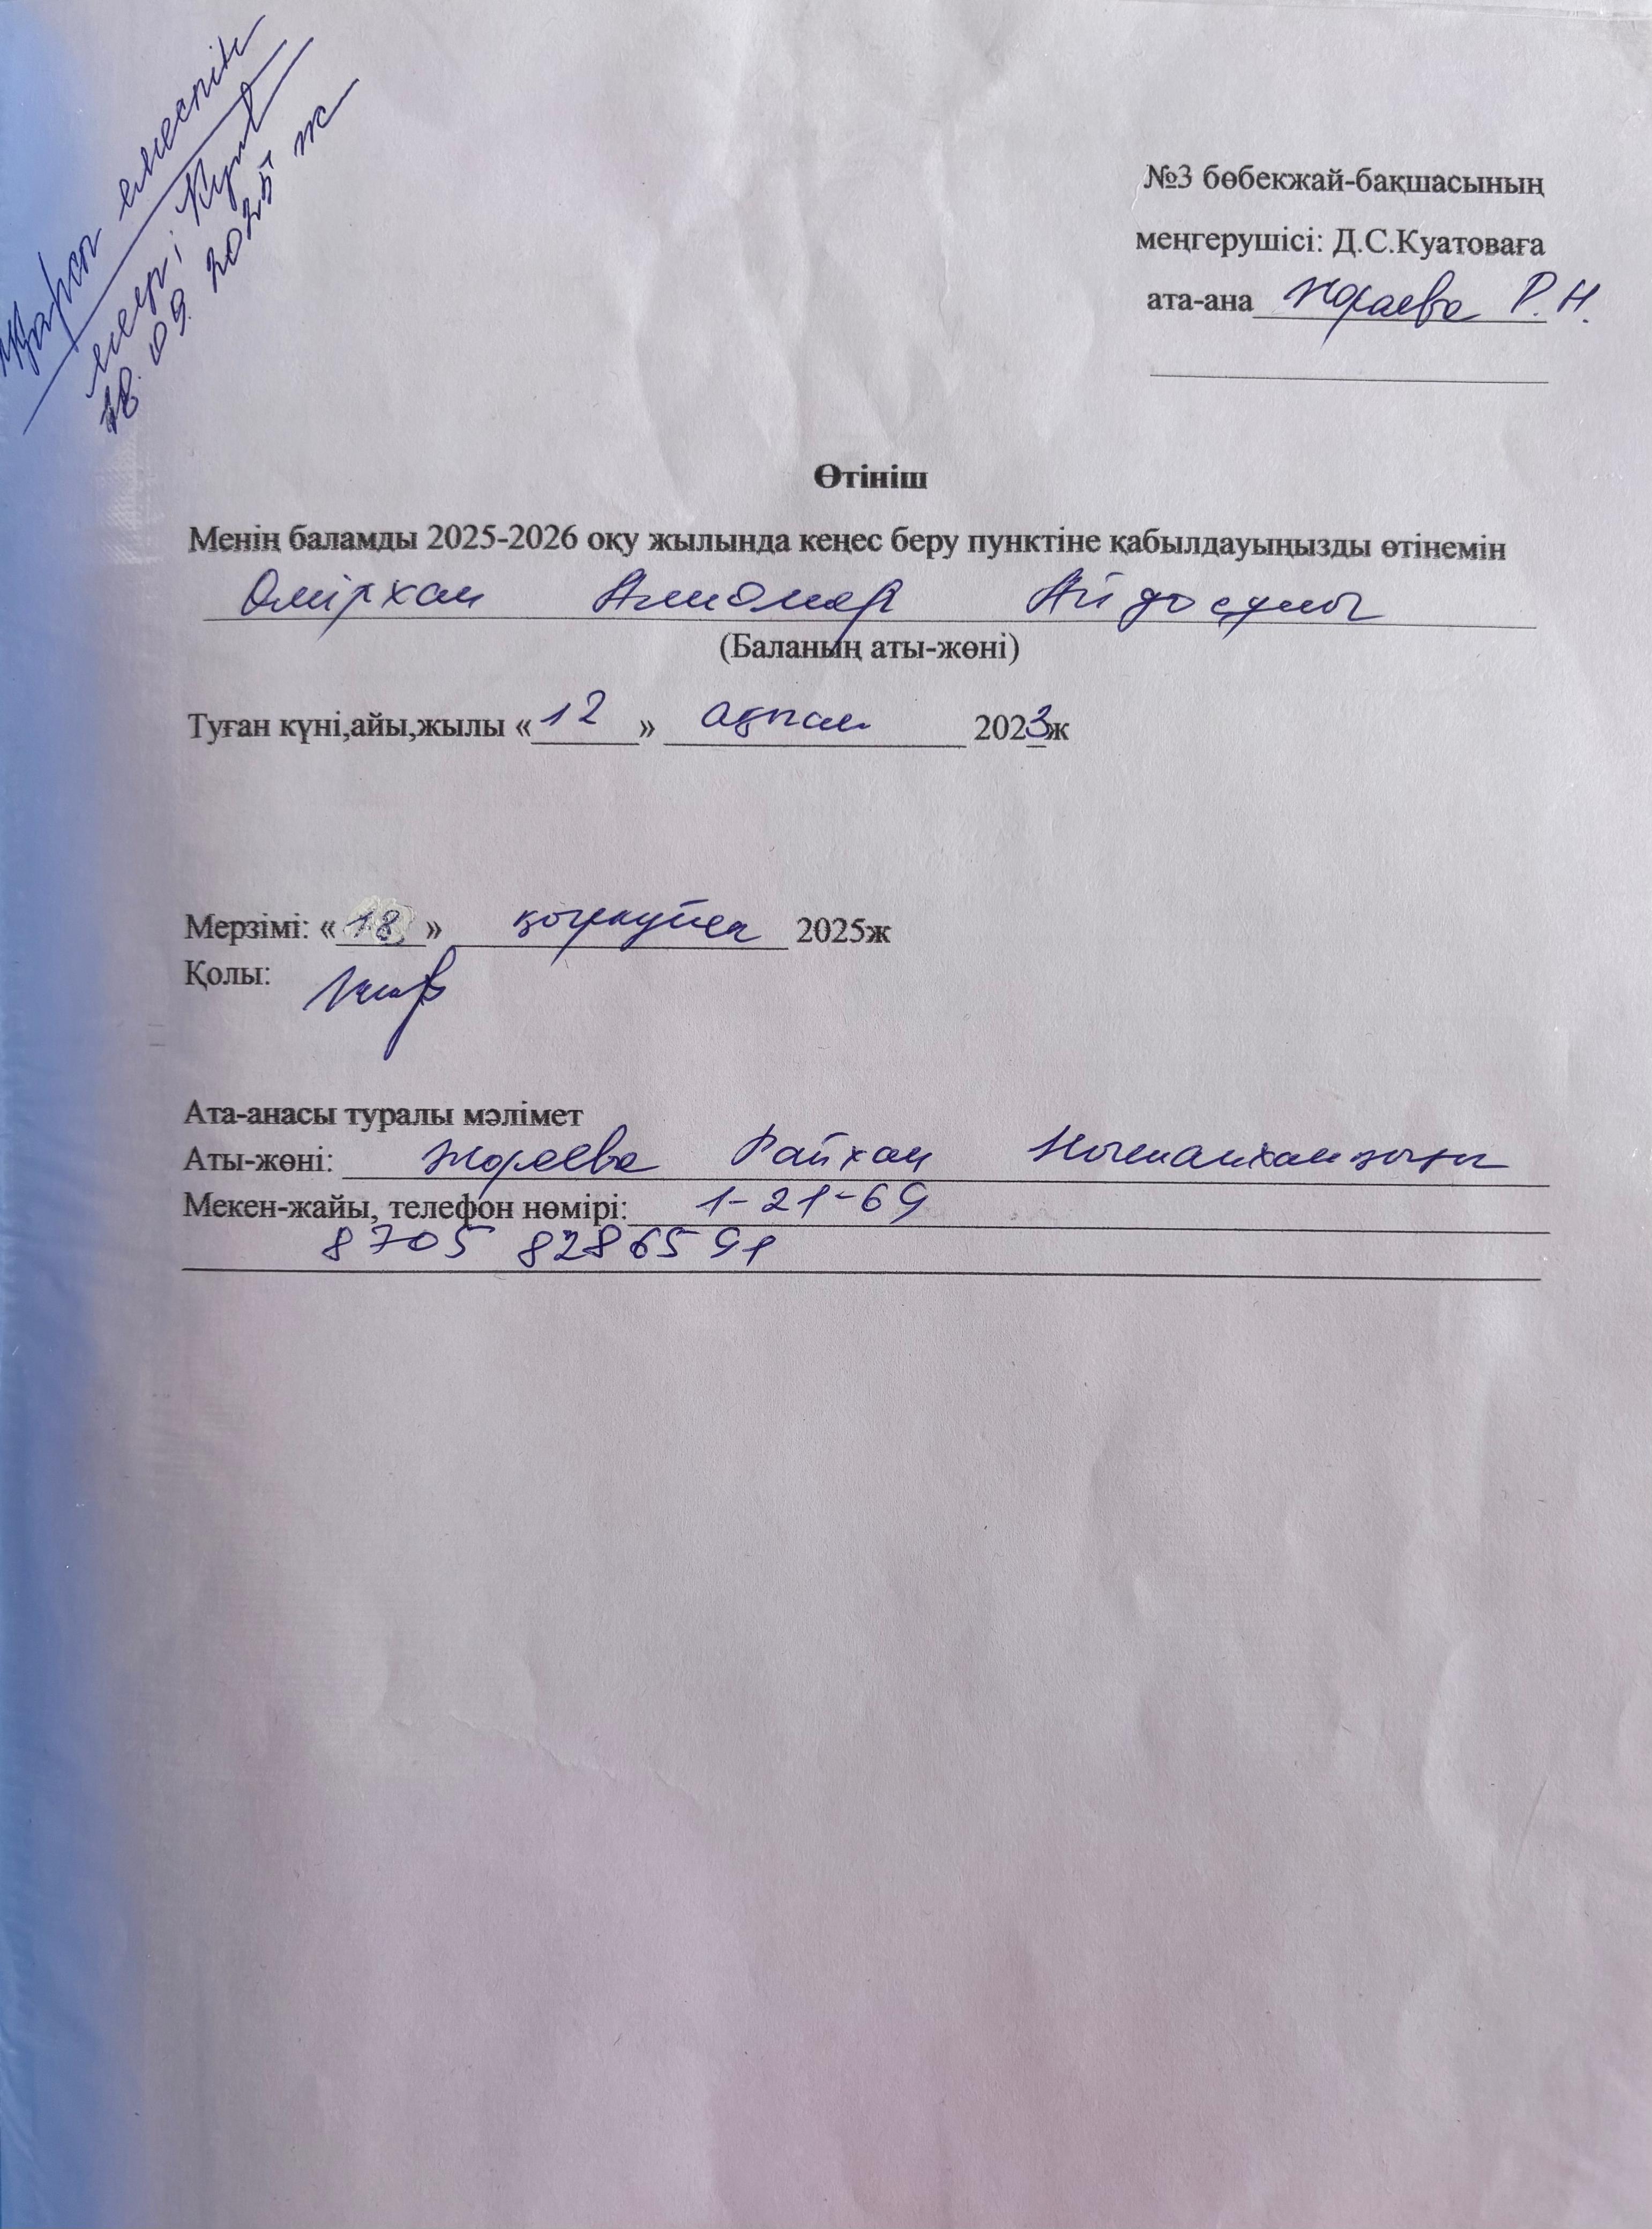 Қарсы емеспін
меңг-і
18.09.2025 ж
№3 бөбекжай-бақшасының
меңгерушісі: Д.С.Куатоваға
ата-ана Жораева Р.Н.
Өтініш
Менің баламды 2025-2026 оқу жылында кеңес беру пунктіне қабылдауыңызды өтінемін
Өмірхан Алиомар Айдосұлы
(Баланың аты-жөні)
Туған күні,айы,жылы «12» ақпан 2023ж
Мерзімі: «18» қыркүйек 2025ж
Қолы:
Ата-анасы туралы мәлімет
Аты-жөні: Жораева Райхан Нышанханқызы
Мекен-жайы, телефон нөмірі: 1-21-69
8705 8286591